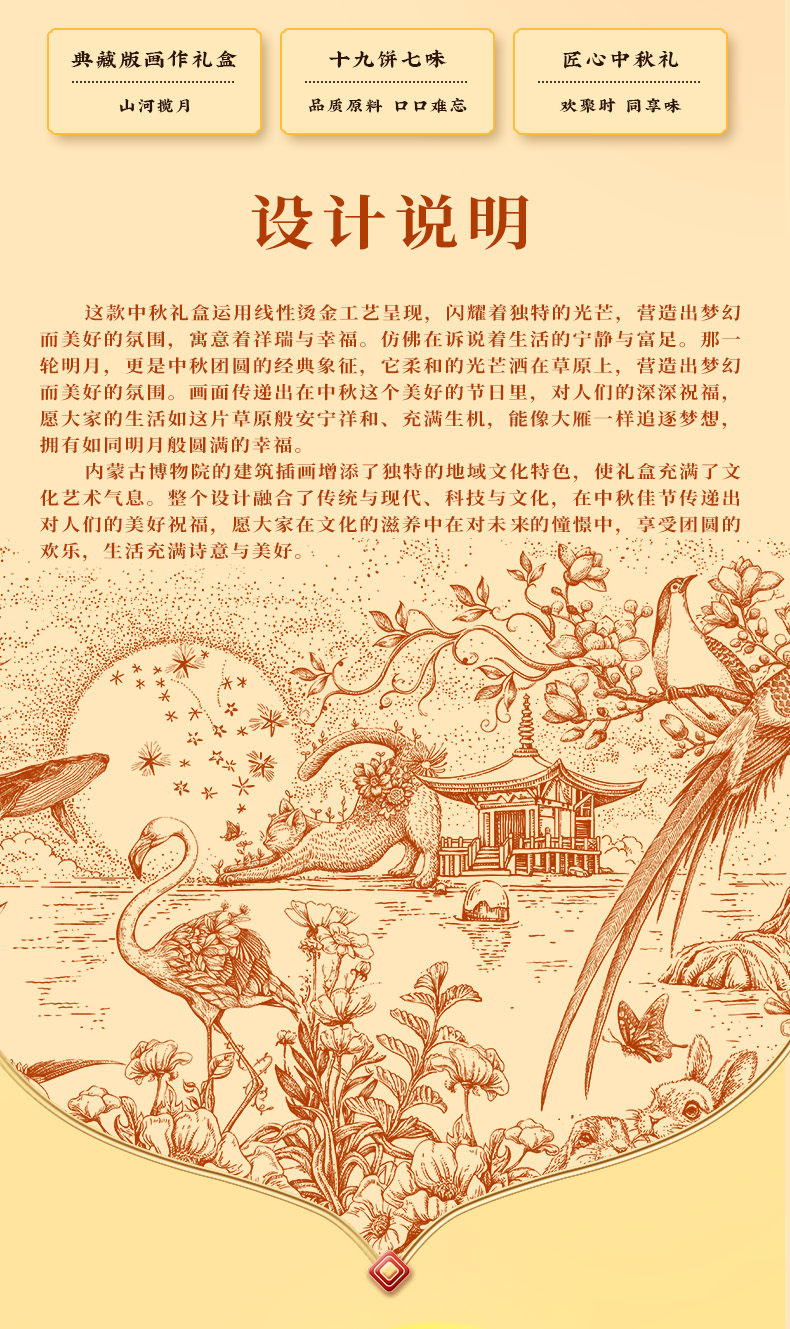 典藏版画作礼盒
山河揽月
十九饼七味
品质原料 口口难忘
匠心中秋礼
欢聚时 同享味
设计说明
这款中秋礼盒运用线性烫金工艺呈现，闪耀着独特的光芒，营造出梦幻
而美好的氛围，寓意着祥瑞与幸福。仿佛在诉说着生活的宁静与富足。那一
轮明月，更是中秋团圆的经典象征，它柔和的光芒洒在草原上，营造出梦幻
而美好的氛围。画面传递出在中秋这个美好的节日里，对人们的深深祝福，
愿大家的生活如这片草原般安宁祥和、充满生机，能像大雁一样追逐梦想，
拥有如同明月般圆满的幸福。
内蒙古博物院的建筑插画增添了独特的地域文化特色，使礼盒充满了文
化艺术气息。整个设计融合了传统与现代、科技与文化，在中秋佳节传递出
对人们的美好祝福，愿大家在文化的滋养中在对未来的憧憬中，享受团圆的
欢乐，生活充满诗意与美好。